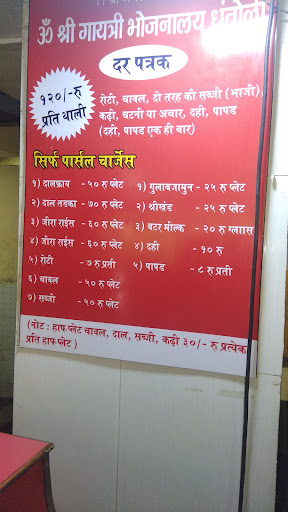 ॐ श्री गायत्री भोजनालय धंतोली
दर पत्रक
१२०/-रु
प्रति थाली
रोटी, चावल, दो तरह की सब्जी (भाजी),
कढ़ी, चटनी या अचार, दही, पापड
(दही, पापड एक ही बार)
सिर्फ पार्सल चार्जेस
१) दालफ्राय - ५० रु प्लेट
२) दाल तडका - ७० रु प्लेट
३) जीरा राईस - ६० रु प्लेट
४) जीरा राईस - ६० रु प्लेट
५) रोटी - ७ रु प्रती
६) चावल - ५० रु प्लेट
७) सब्जी - ५० रु प्लेट
१) गुलाबजामुन - २५ रु प्लेट
२) श्रीखंड - २५ रु प्लेट
३) बटर मील्क - २० रु ग्लाास
४) दही - १० रु
५) पापड - ८ रु प्रती
(नोट : हाफ प्लेट चावल, दाल, सब्जी, कढ़ी ३०/- रु प्रत्येक
प्रति हाफ प्लेट )